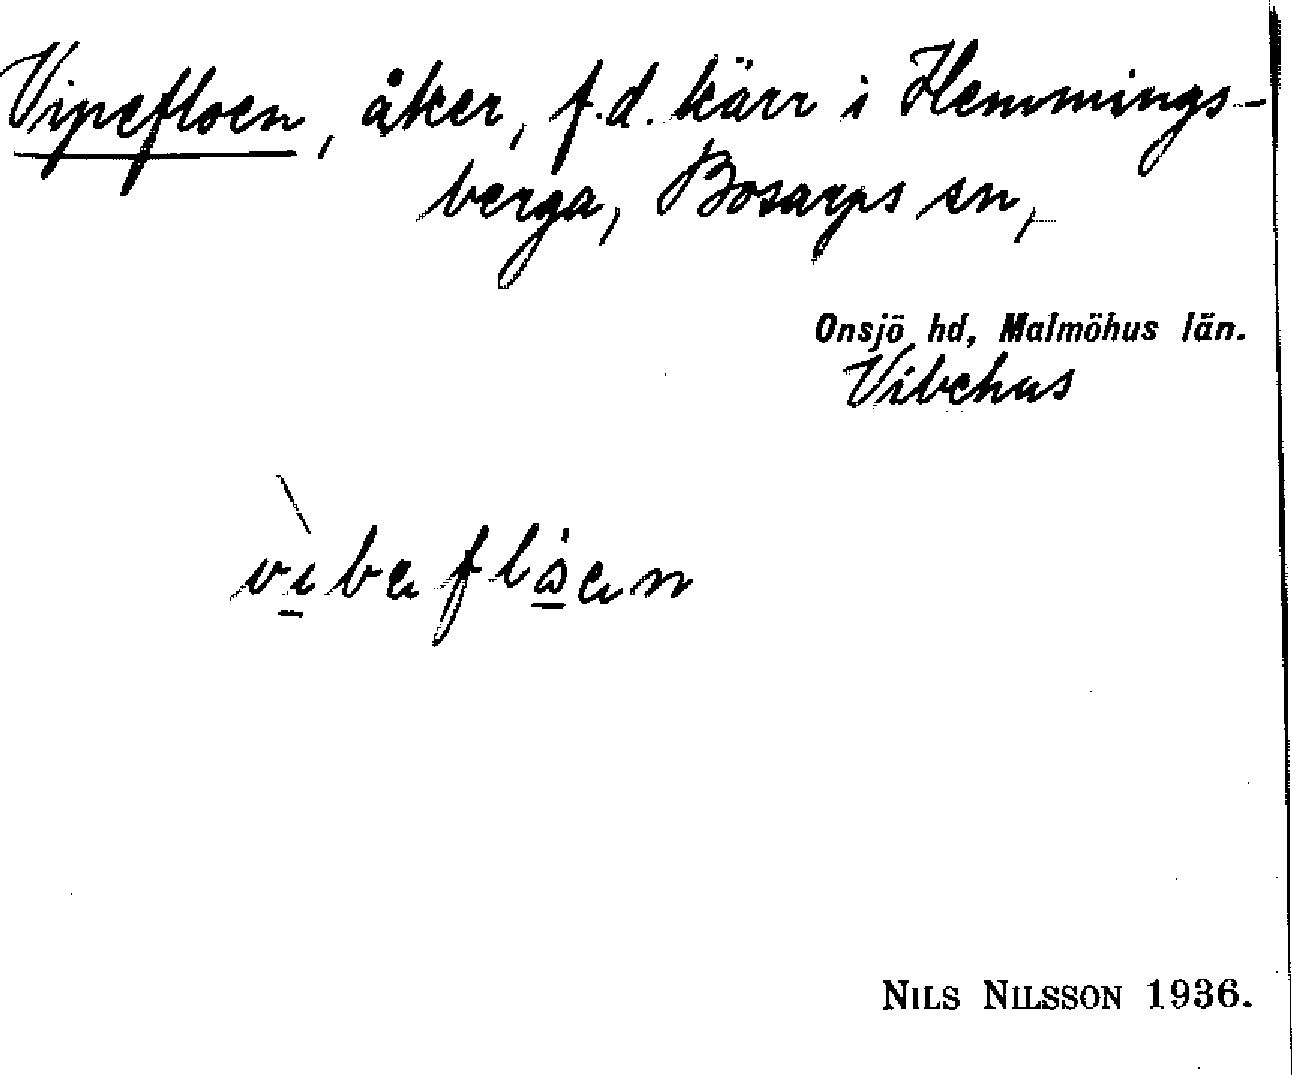 Vipefloen, åker, f.d. kärr i Hemmings-
berga, Bosarps sn,
Onsjö hd, Malmöhus län.
Vibehus
NILS NILSSON 1936.